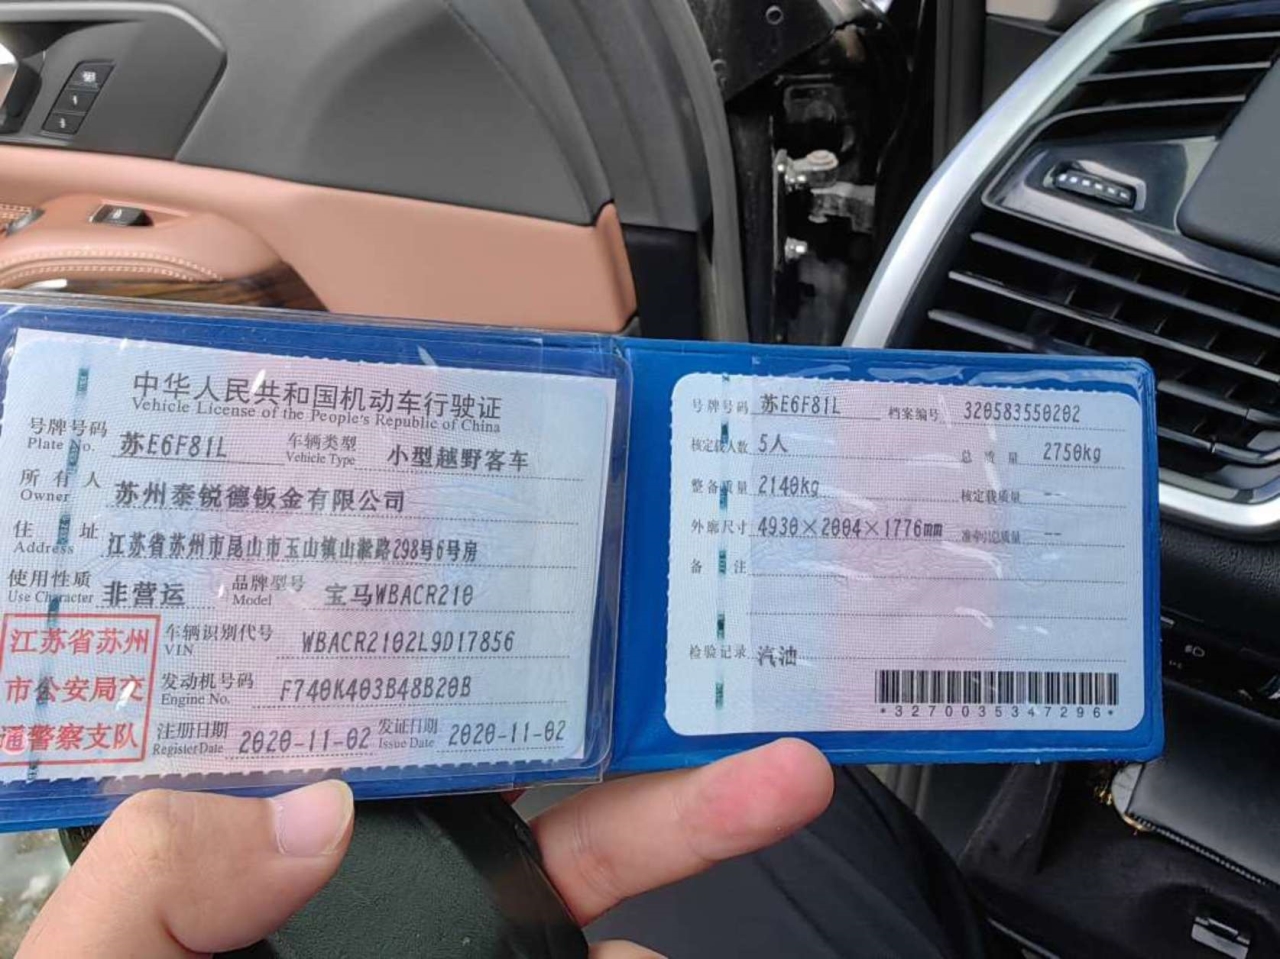 中华人民共和国机动车行驶证
Vehicle License of the People's Republic of China
号牌号码 苏E6F81L 车辆类型 小型越野客车
Plate No. Vehicle Type
所有人 苏州泰锐德钣金有限公司
Owner
住址 江苏省苏州市昆山市玉山镇山淞路298号6号房
Address
使用性质 非营运 品牌型号 宝马WBACR210
Use Character Model
江苏省苏州
市公安局交
通警察支队
车辆识别代号 WBACR2102L9D17856
VIN
发动机号码 F740K403B48B20B
Engine No.
注册日期 2020-11-02 发证日期 2020-11-02
Register Date Issue Date
号牌号码 苏E6F81L 档案编号 320583550202
核定载人数 5人 总质量 2750kg
整备质量 2140kg 核定载质量 --
外廓尺寸 4930×2004×1776mm 准牵引总质量 --
备注
检验记录 汽油
*3270035347296*